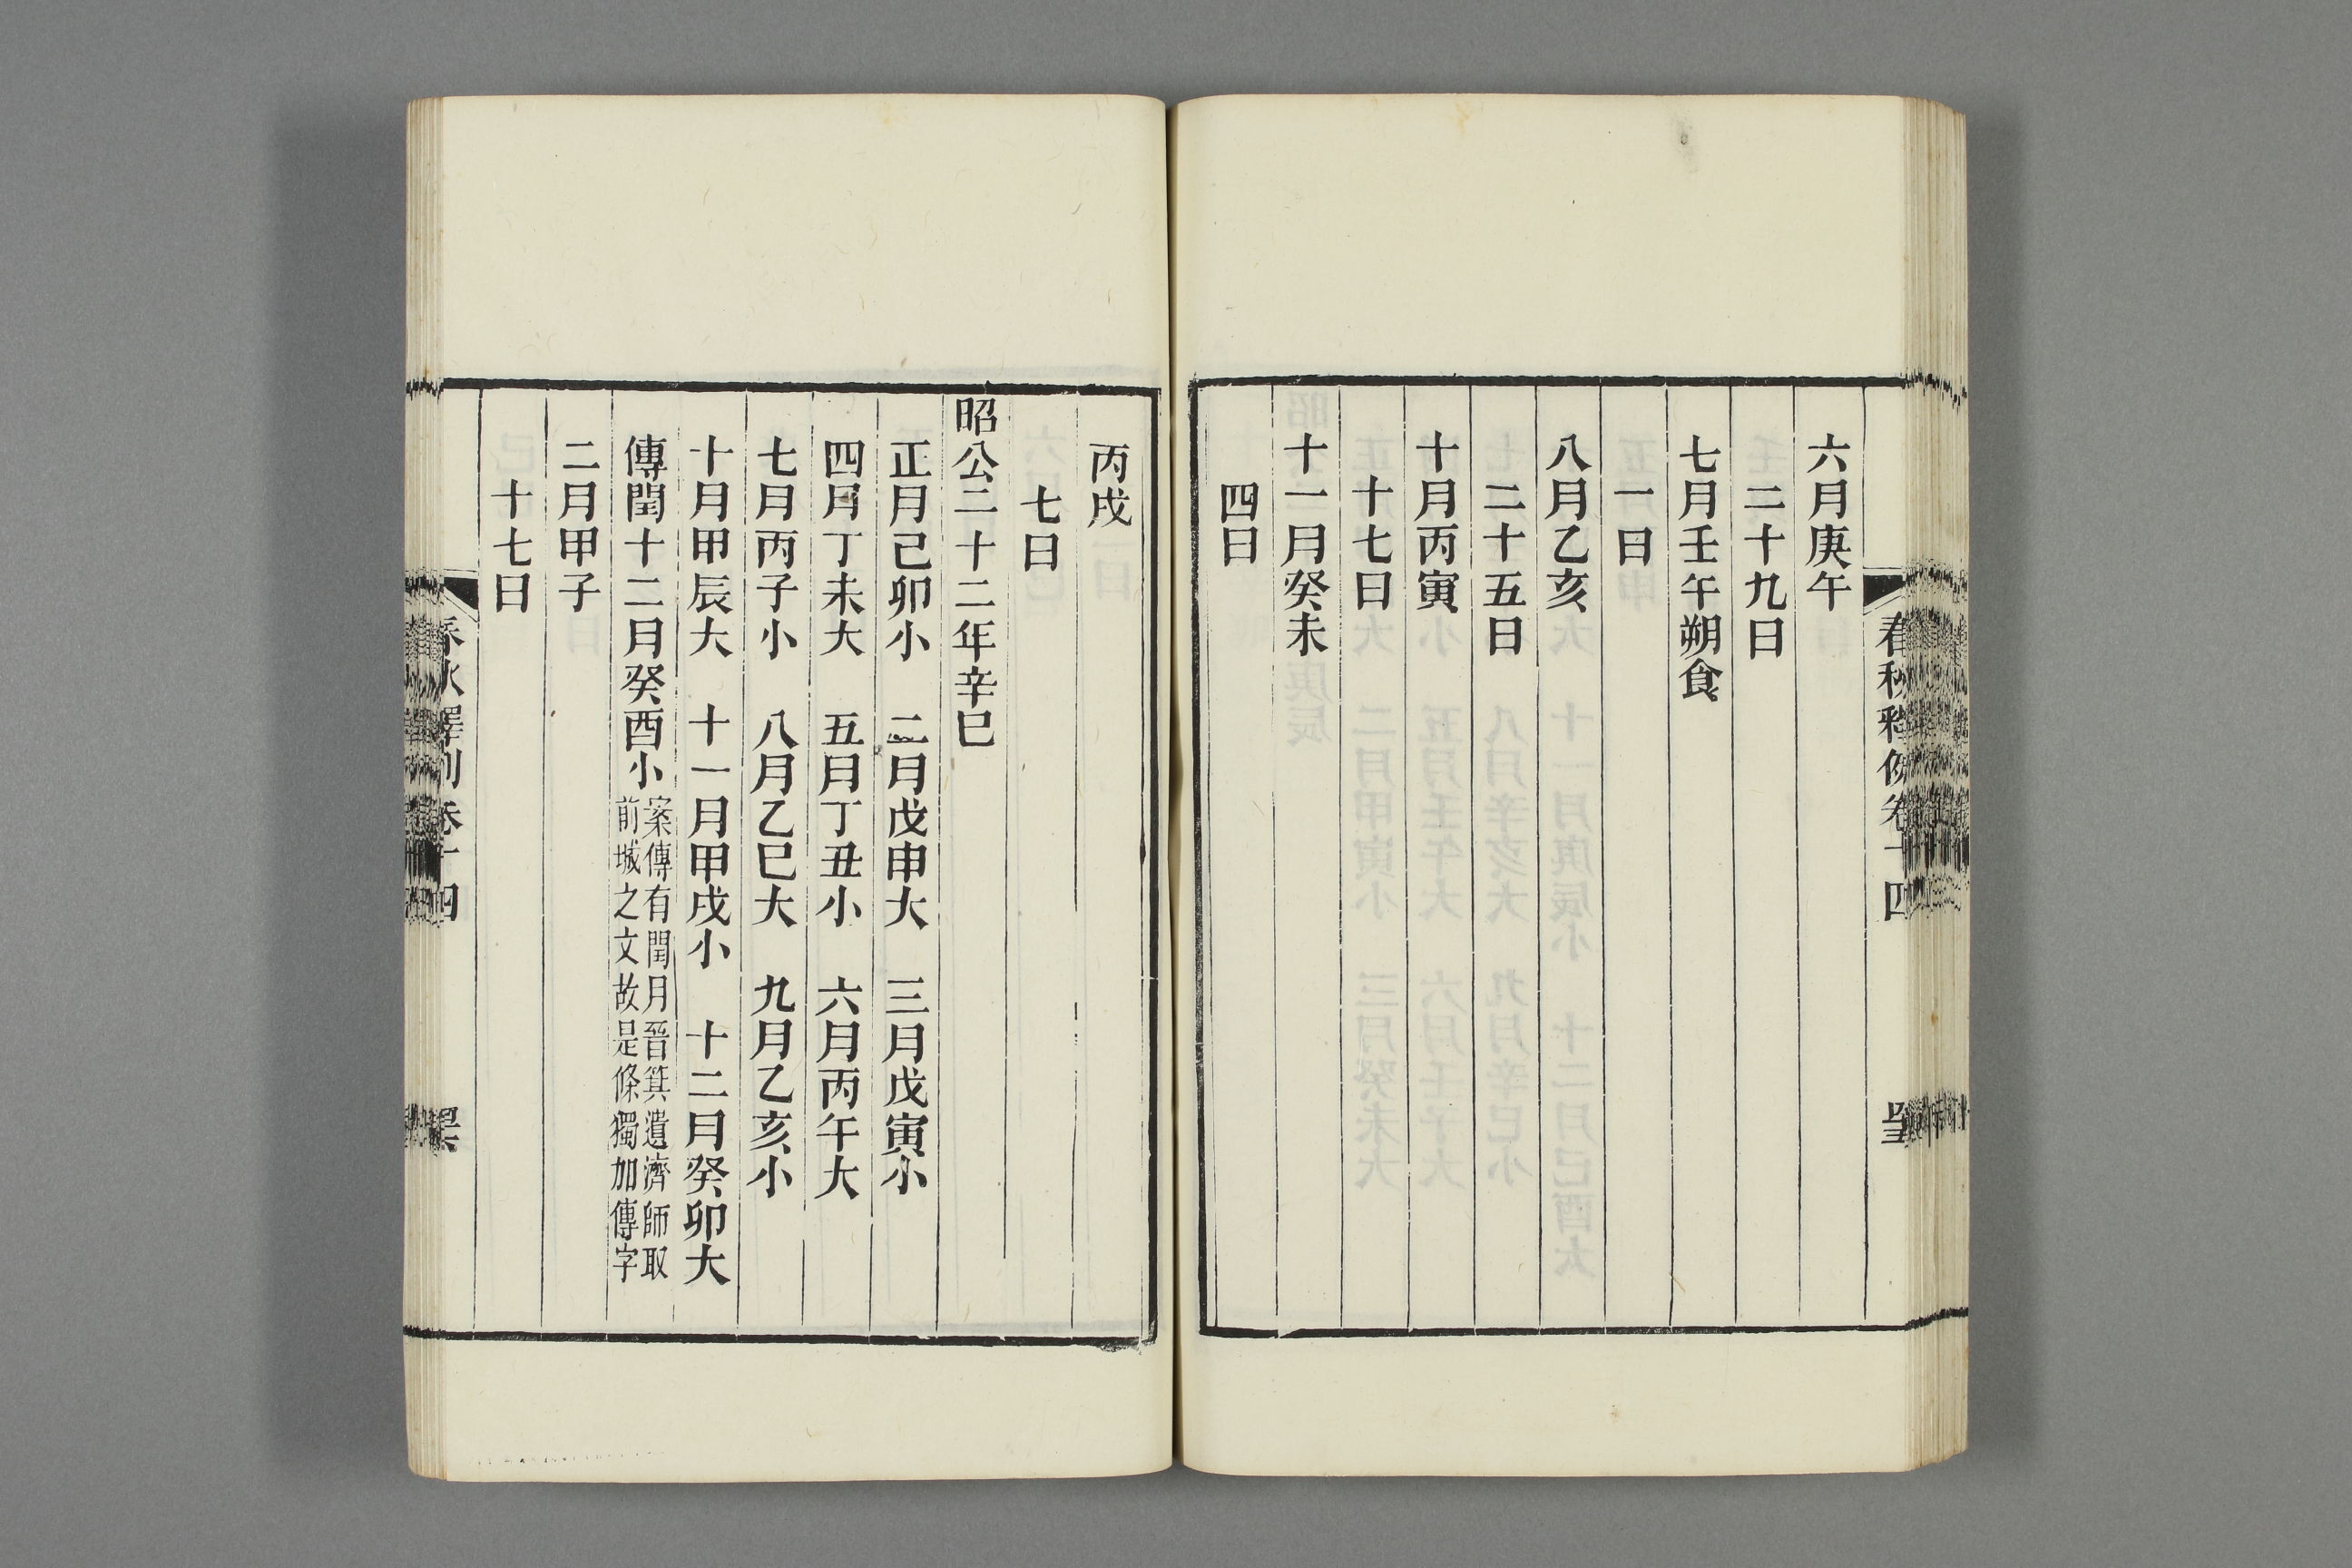 六月庚午
二十九日
七月壬午朔食
一日
八月乙亥
二十五日
十月丙寅
十七日
十一月癸未
四日
丙戌
七日
昭公二十二年辛巳
正月己卯小　二月戊申大　三月戊寅小
四月丁未大　五月丁丑小　六月丙午大
七月丙子小　八月乙巳大　九月乙亥小
十月甲辰大　十一月甲戌小　十二月癸卯大
傳閏十二月癸酉小案傳有閏月晉箕遺濟師取
前城之文故是條獨加傳字
二月甲子
十七日
春秋釋例卷十四